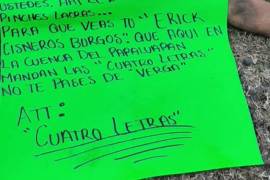 USTEDES, ATI EL
PINCHES LACRAS...
PARA QUE VEAS TU "ERICK
CISNEROS BURGOS", QUE AQUI EN
LA CUENCA DEL PAPALOAPAN
MANDAN LAS "CUATRO LETRAS"
NO TE PASES DE "VERGA"
ATT:
"CUATRO LETRAS"